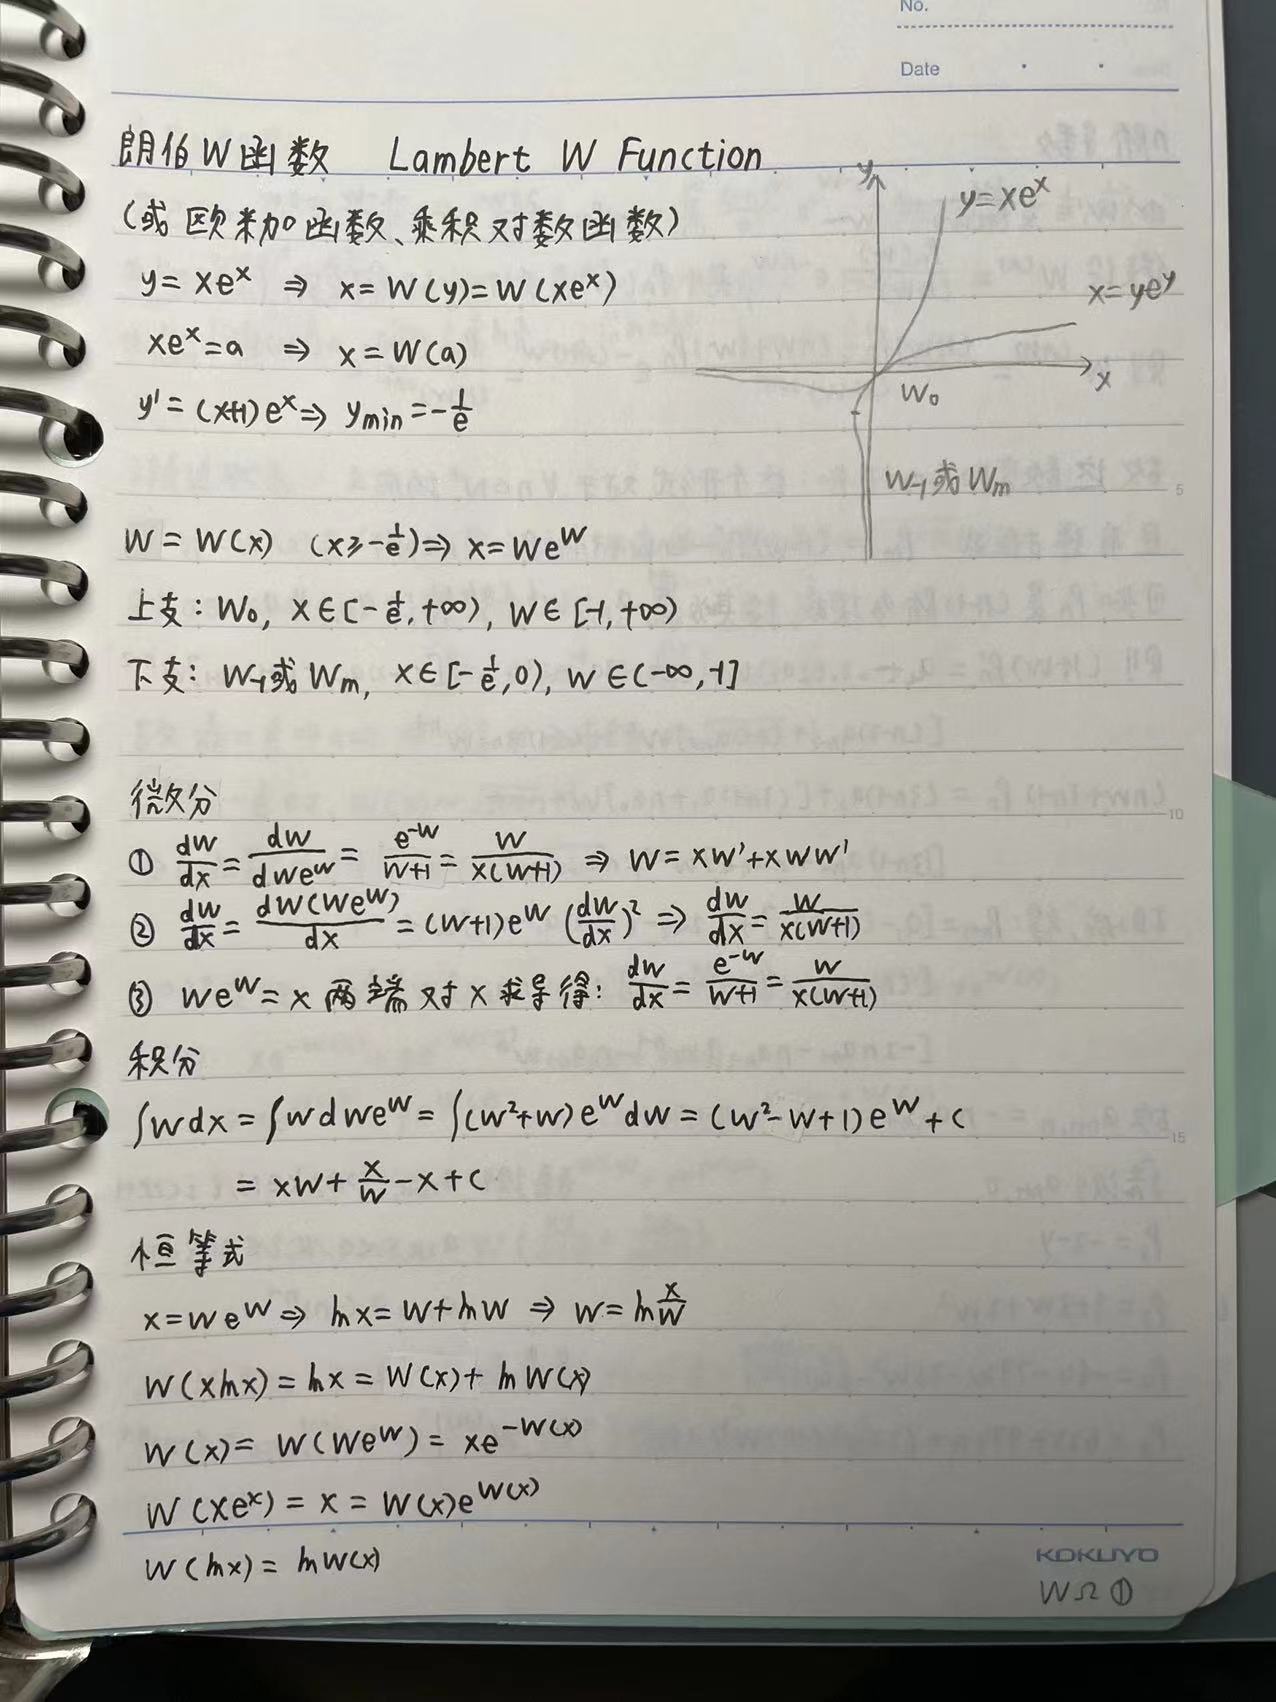 No.
Date
朗伯W函数 Lambert W Function
(或欧米加函数、乘积对数函数)
y=xeˣ ⇒ x=W(y)=W(xeˣ)
xeˣ=a ⇒ x=W(a)
y'=(x+1)eˣ⇒ y_min=-1/e
y
y=xeˣ
x=yeʸ
x
W₀
W₋₁或Wₘ
5
W=W(x) (x≥-1/e)⇒ x=We^W
上支: W₀, x∈[-1/e,+∞), W∈[-1,+∞)
下支: W₋₁或Wₘ, x∈[-1/e,0), W∈(-∞,-1]
微分
10
① dW/dx = dW/dWe^W = e^-W/W+1 = W/x(W+1) ⇒ W=xW'+xWW'
② dW/dx = dW(We^W)/dx = (W+1)e^W (dW/dx)² ⇒ dW/dx = W/x(W+1)
③ We^W=x 两端对x求导得: dW/dx = e^-W/W+1 = W/x(W+1)
积分
∫Wdx=∫WdWe^W=∫(W²+W)e^WdW=(W²-W+1)e^W+C
15
=xW+x/W-x+C
恒等式
x=We^W⇒ lnx=W+lnW ⇒ W=ln x/W
W(xlnx)=lnx=W(x)+lnW(x)
W(x)=W(We^W)=xe^-W(x)
W(xeˣ)=x=W(x)e^W(x)
W(lnx)=lnW(x)
KOKUYO
WΩ ①